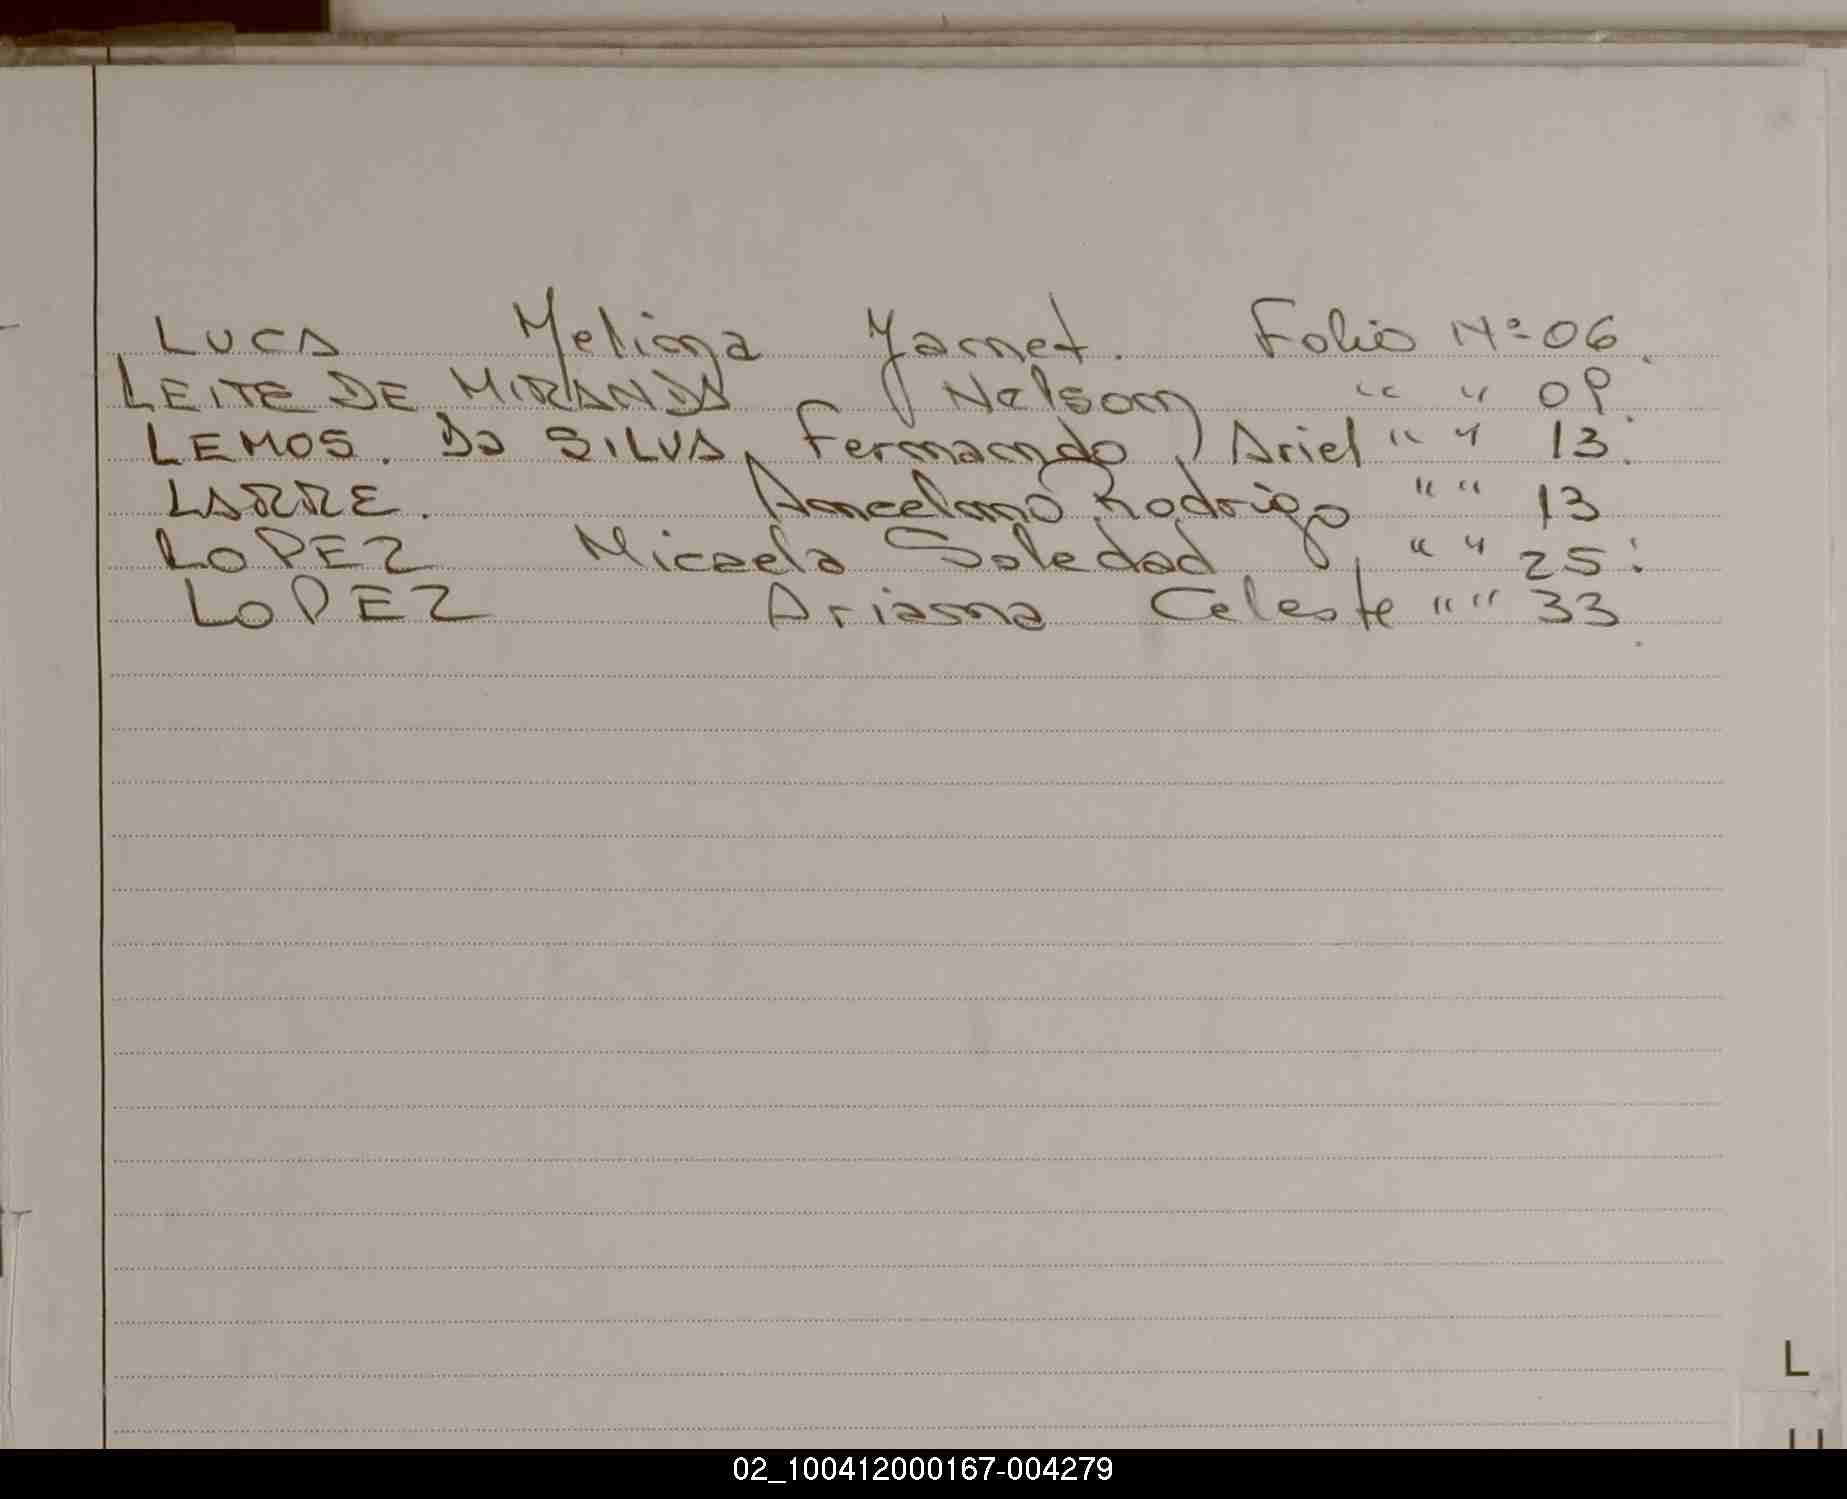 LUCA Melina Yarnet. Folio Nº 06.
LEITE DE MIRANDA Nelson " " 09.
LEMOS. Da SILVA, Fernando Ariel " " 13.
LARRE. Ancelmo Rodrigo " " 13
LOPEZ Micaela Soledad, " " 25.
LOPEZ Ariana Celeste " " 33.
L
02_100412000167-004279